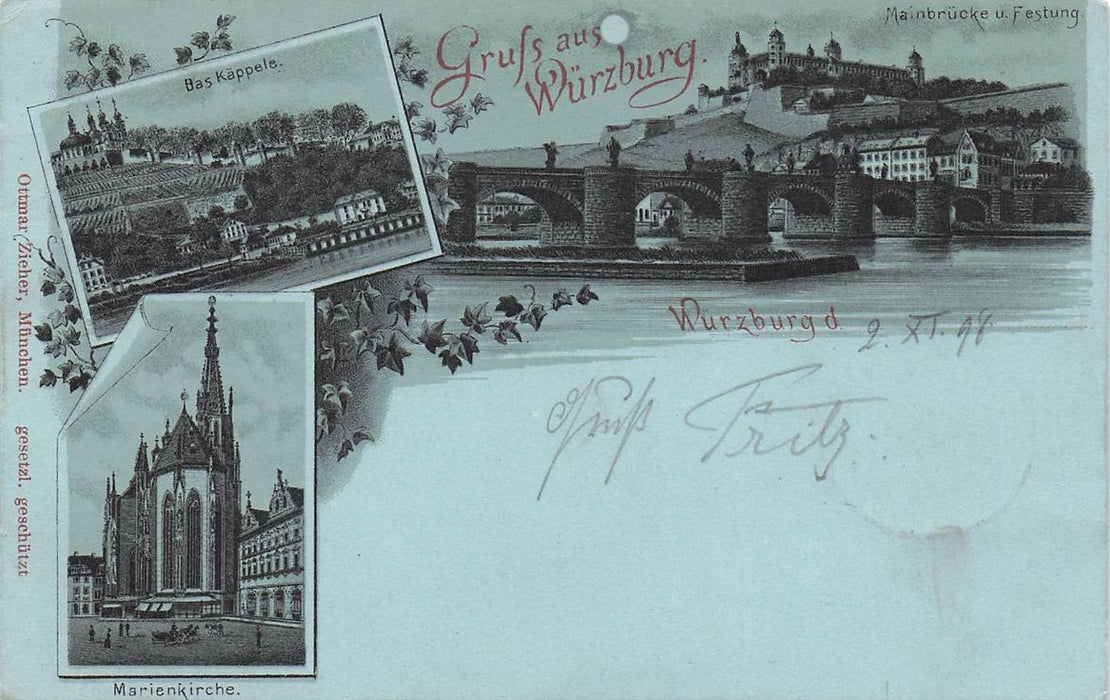 Mainbrücke u. Festung
Gruss aus
Würzburg.
Das Käppele.
Würzburg d. 2. XI. 98
Gruß Fritz.
Marienkirche.
Ottmar Zieher, München. gesetzl. geschützt